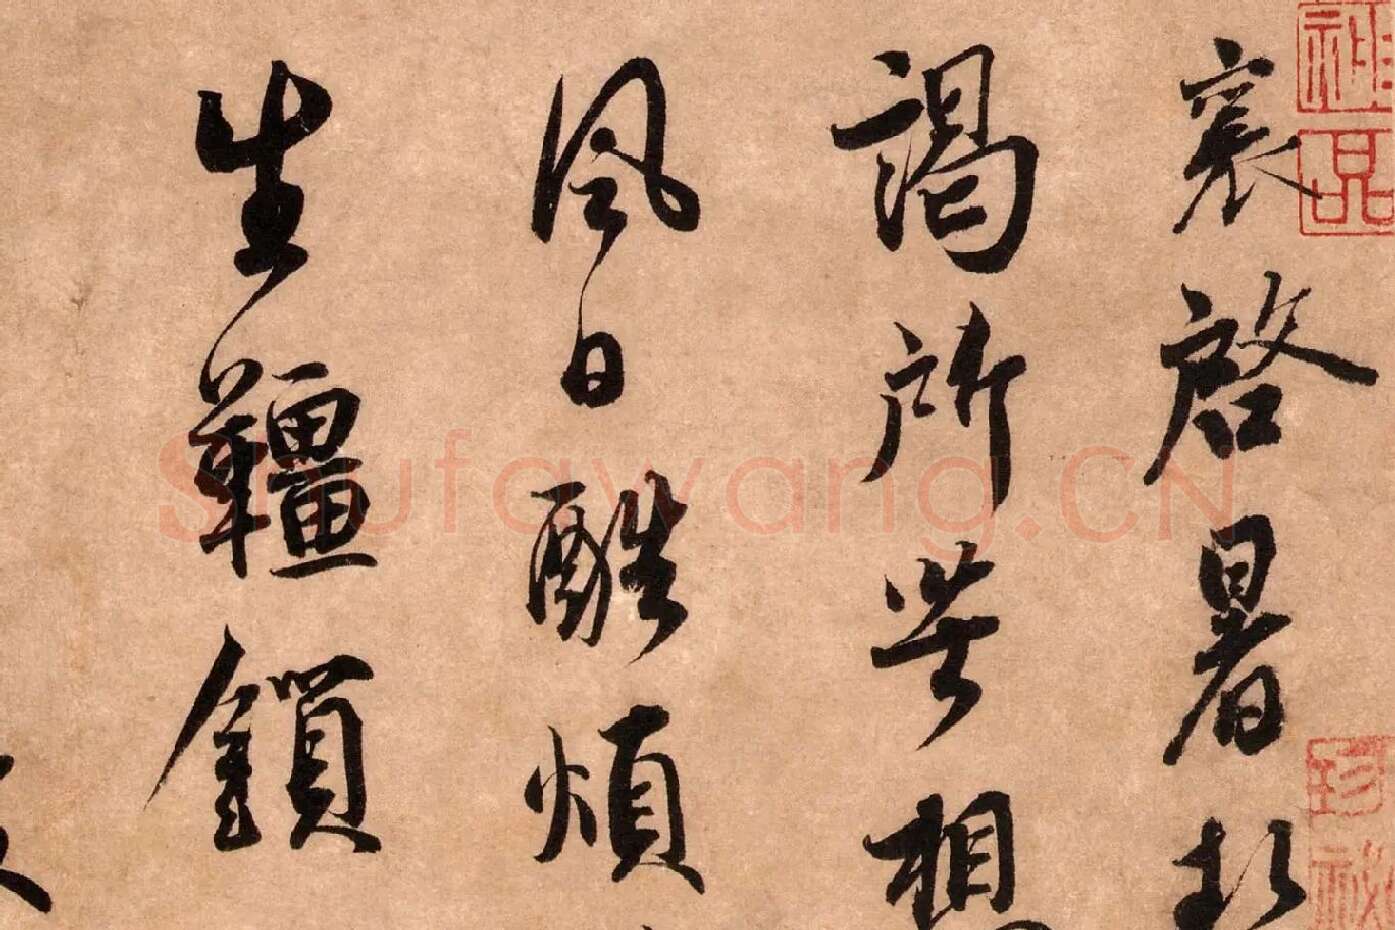 神品
珍祕
襄啓暑熱
謁所苦想
風日酷煩
生韁鎖
shufawang.CN